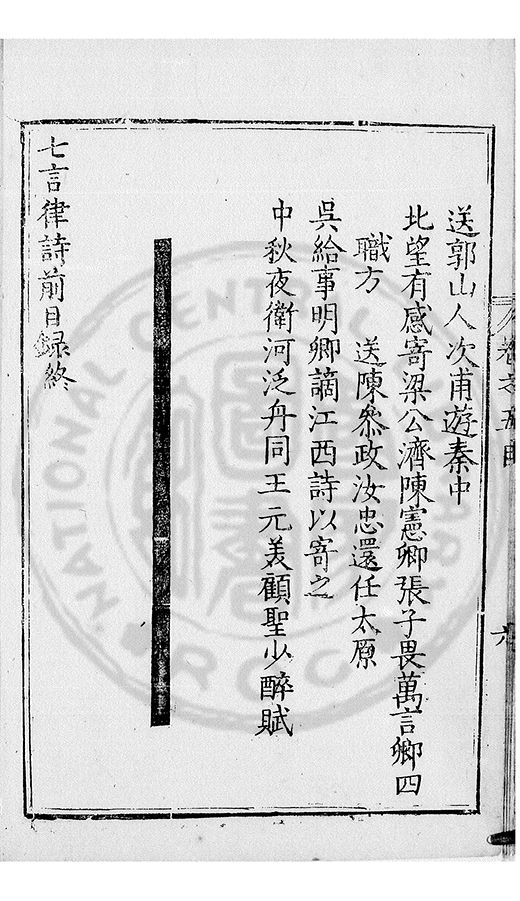 送郭山人次甫遊秦中
北望有感寄梁公濟陳憲卿張子畏萬言卿四
職方　送陳叅政汝忠還任太原
吳給事明卿謫江西詩以寄之
中秋夜衛河泛舟同王元美顧聖少醉賦
七言律詩前目録終
卷之五目
六
NATIONAL CENTRAL LIBRARY
R.O.C.